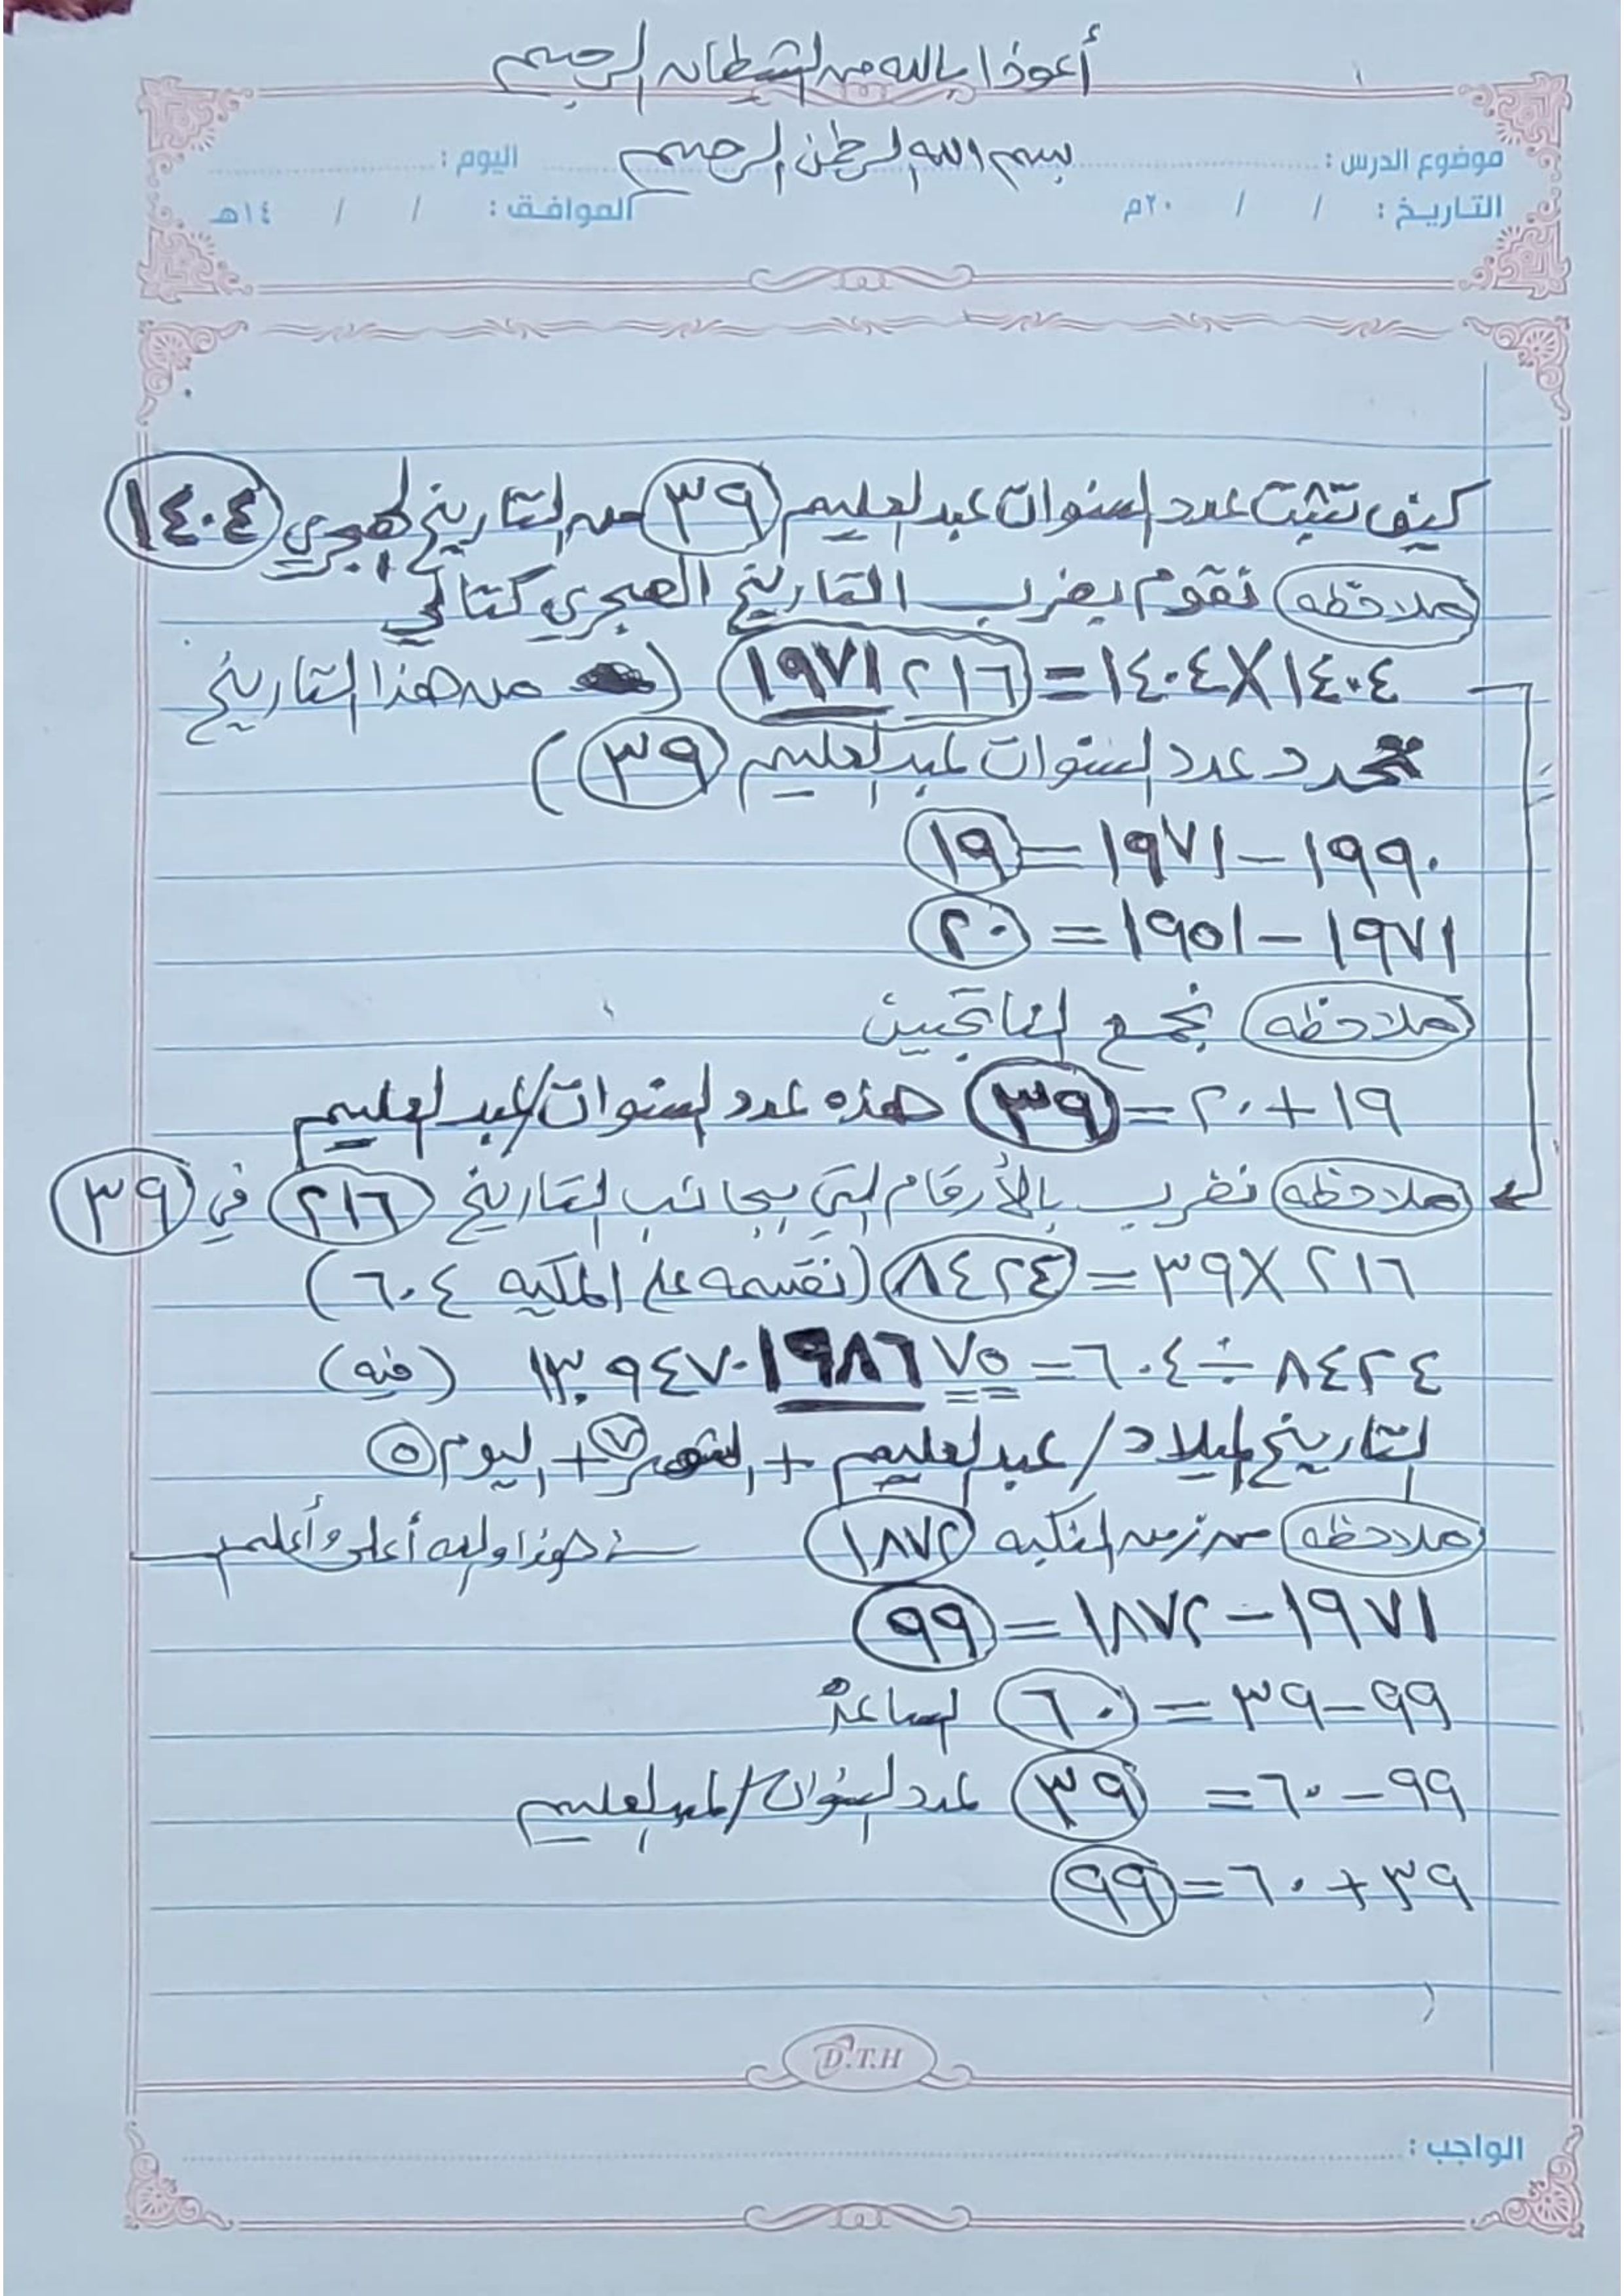 أعوذا بالله من الشيطان الرجيم
بسم الله الرحمن الرحيم
موضوع الدرس : اليوم :
التاريخ : / / ٢٠م الموافق : / / ١٤هـ
كيف تثبت عدد السنوات عبد العليم ٣٩ من التاريخ الهجري ١٤٠٤
ملاحظه نقوم بضرب التاريخ الهجري كتالي
١٤٠٤ X ١٤٠٤ = ١٩٧١٢١٦ ( من هذا التاريخ
نحدد عدد السنوات عبد العليم ٣٩ )
١٩٩٠ – ١٩٧١ = ١٩
١٩٧١ – ١٩٥١ = ٢٠
ملاحظه نجمع الناتجين
١٩ + ٢٠ = ٣٩ هذه عدد السنوات / عبد العليم
ملاحظه نضرب بالأرقام التي بجانب التاريخ ٢١٦ في ٣٩
٢١٦ X ٣٩ = ٨٤٢٤ (نقسمه على المكيه ٦٠٤)
٨٤٢٤ ÷ ٦٠٤ = ١٣.٩٤٧٠١٩٨٦٧٥ (فيه)
التاريخ الميلاد / عبد العليم + الشهر ٧ + اليوم ٥
ملاحظه من زمن النكبه ١٨٧٢ هذا والله أعلى وأعلم
١٩٧١ – ١٨٧٢ = ٩٩
٩٩ – ٣٩ = ٦٠ الساعة
٩٩ – ٦٠ = ٣٩ عدد السنوات / عبد العليم
٣٩ + ٦٠ = ٩٩
D.T.H
الواجب :